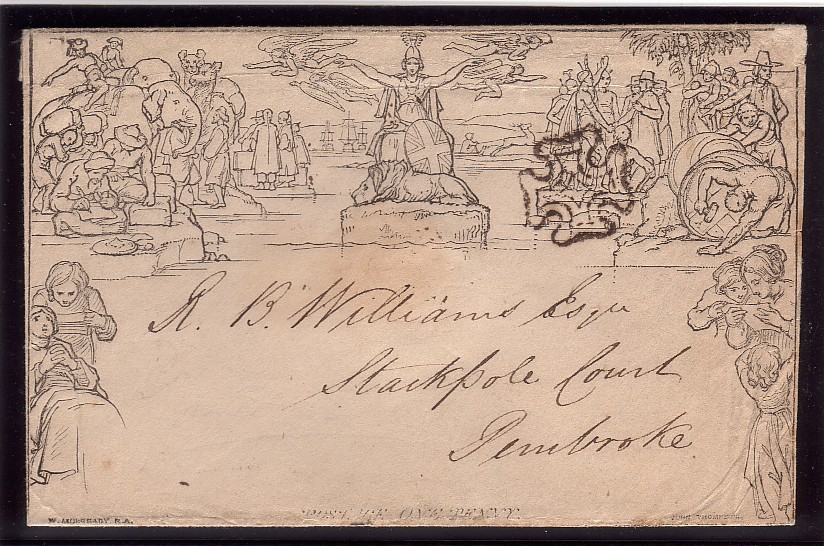 R. B. Williams Esqr
Stackpole Court
Pembroke
POSTAGE ONE PENNY
W. MULREADY R.A.
JOHN THOMPSON